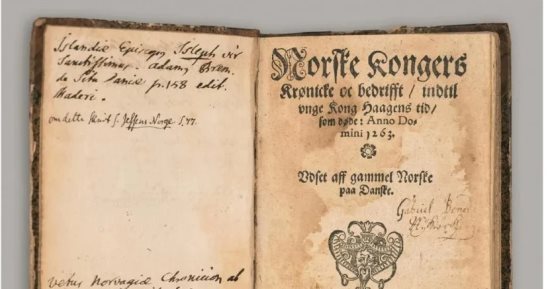 Islandiæ Episcop. Isleph vir
Sanctissimus. Adam. Brem.
de Situ Daniæ p. 158 edit.
Maderi.
om dette
Norge S. 77.
vetus Norvagiæ Chronicion ab
Norske Kongers
Kronicke oc bedrifft / indtil
vnge Kong Haagens tid /
som døde: Anno Do-
mini 1263.
Vdset aff gammel Norske
paa Danske.
Gabriel